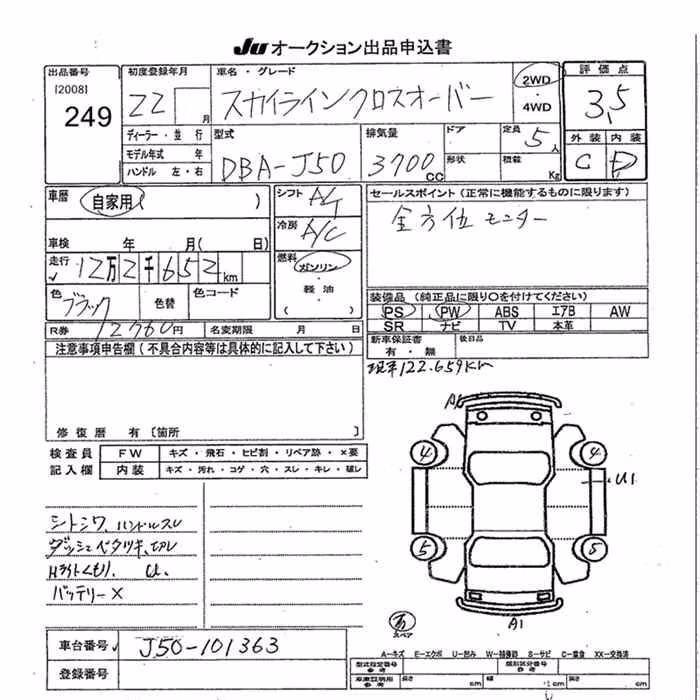 JU オークション出品申込書
出品番号 初度登録年月 車名・グレード 評価点
[2008] 249 22 月 スカイラインクロスオーバー 2WD ・ 4WD 3,5
ディーラー・並行 型式 排気量 ドア 定員 5人 外装 内装
モデル年式 年 DBA-J50 3700cc 形状 積載 Kg C D
ハンドル 左・右
車歴 自家用( ) シフト A/T セールスポイント(正常に機能するものに限ります)
冷房 A/C 全方位モニター
車検 年 月( 日)
走行 12万2千652km 燃料 ガソリン ・ 軽油 ・ ( )
色 ブラック 色替 色コード 装備品(純正品に限り○を付けてください)
PS PW ABS エアB AW
SR ナビ TV 本革
R券 12760円 名変期限 月 日 新車保証書 有・無 後日品
注意事項申告欄(不具合内容等は具体的に記入して下さい)
現車122.659Km
修復歴 有〔箇所 〕
検査員 FW キズ・飛石・ヒビ割・リペア跡・×要
記入欄 内装 キズ・汚れ・コゲ・穴・スレ・キレ・破レ
A1
4 4
U1
シトシワ、ハンドルスレ
ダッシュベタツキ、
5 5
Hライトくもり、
バッテリー×
スペア
A1
車台番号 J50-101363
A-キズ E-エクボ U-凹み W-補修跡 S-サビ C-腐食 XX-交換済
登録番号
型式指定番号 参考 類別区分番号 参考
長さ cm 幅 cm 高さ cm